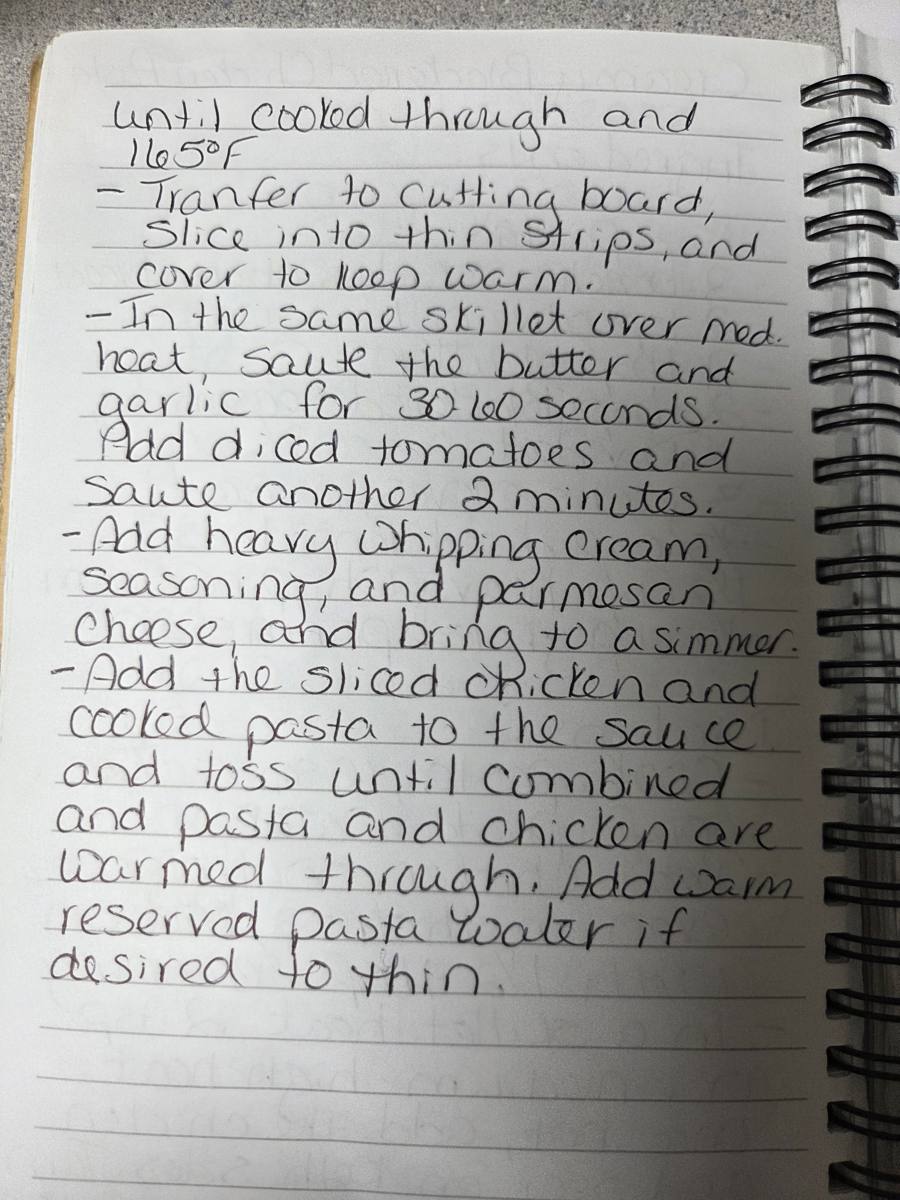 until cooked through and
165°F
- Tranfer to cutting board,
Slice into thin strips, and
cover to keep warm.
- In the same skillet over med.
heat, saute the butter and
garlic for 30-60 seconds.
Add diced tomatoes and
saute another 2 minutes.
- Add heavy whipping cream,
seasoning, and parmesan
cheese, and bring to a simmer.
- Add the sliced chicken and
cooked pasta to the sauce
and toss until combined
and pasta and chicken are
warmed through. Add warm
reserved pasta water if
desired to thin.